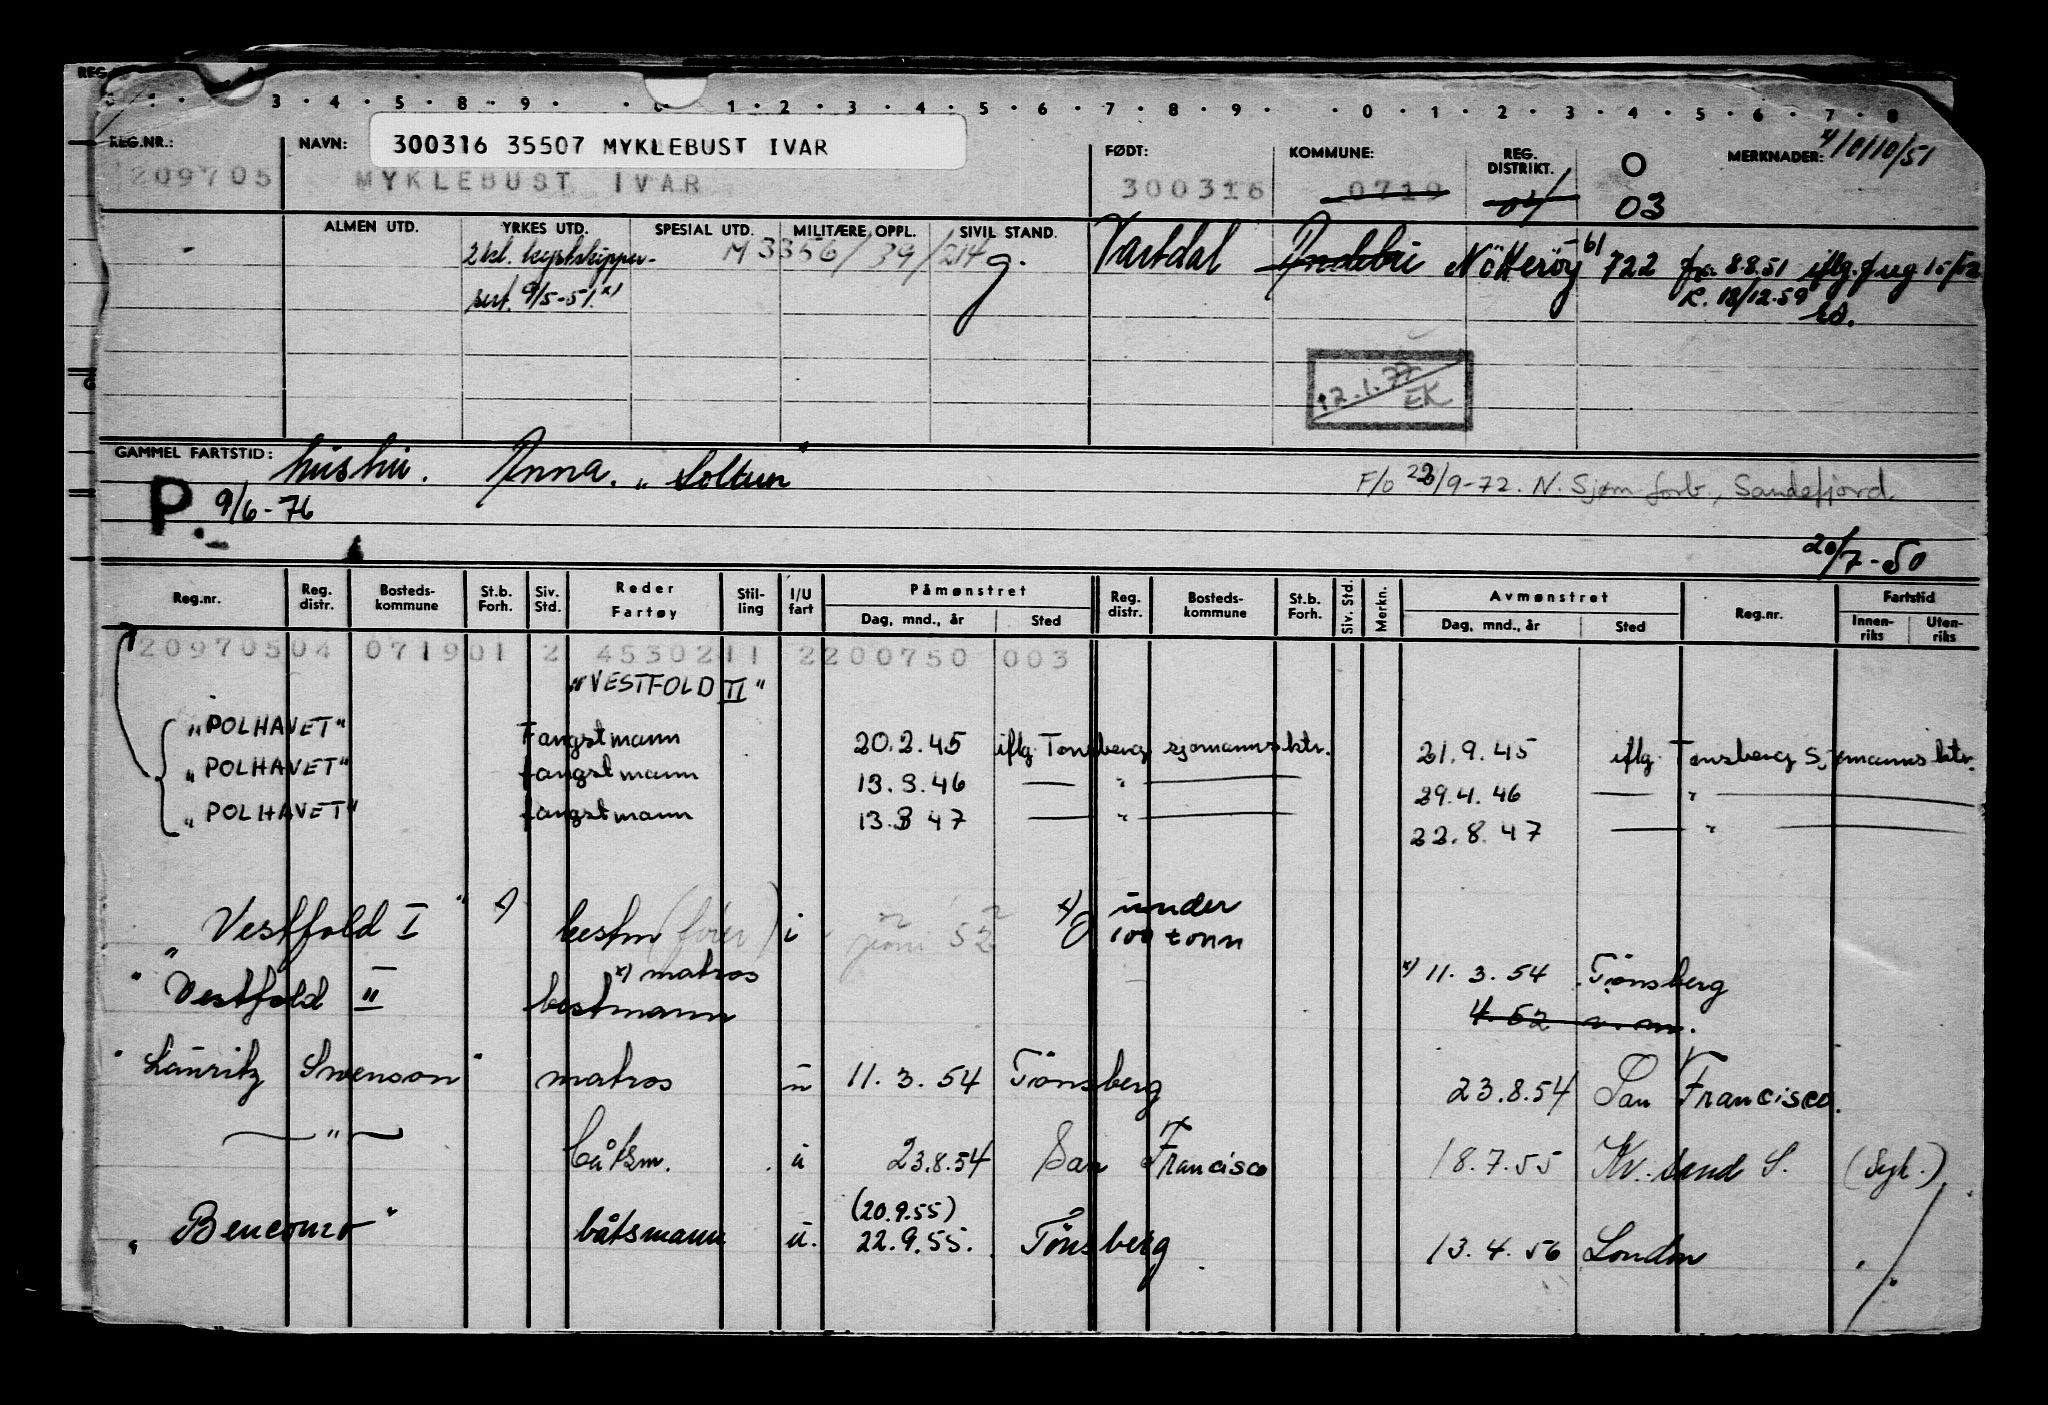 REG
3 · 4 · 5 · 8 · 9 · · 0 · 1 · 2 · 3 · 4 · 5 · 6 · 7 · 8 · 9 · · 0 · 1 · 2 · 3 · 4 · 5 · 6 · 7 · 8
REG.NR.: NAVN: 300316 35507 MYKLEBUST IVAR FØDT: KOMMUNE: REG. DISTRIKT. O MERKNADER: x/10/10/51
209705 MYKLEBUST IVAR 300316 0719 04 03
ALMEN UTD. YRKES UTD. SPESIAL UTD. MILITÆRE OPPL. SIVIL STAND.
2 kl. kystskipper- M 3356/39/214 g. Vartdal Andebu Nötteröy -61 722 fra 8.8.51 iflg. f reg 15/12
sert. 9/5-51. x) R. 18/12.59
12.1.72 EK
GAMMEL FARTSTID: hustru. Anna. „Soltun" F/o 22/9-72. N. Sjøm.forb., Sandefjord
P. 9/6-76
20/7-50
Reg.nr. Reg. distr. Bosteds- kommune St.b. Forh. Siv. Std. Reder Fartøy Stil- ling I/U fart Påmønstret Reg. distr. Bosteds- kommune St.b. Forh. Siv. Std. Merkn. Avmønstret Reg.nr. Fartstid
Dag, mnd., år Sted Dag, mnd., år Sted Innen- riks Uten- riks
20970504 071901 2 4530211 2200750 003
„VESTFOLD II"
„POLHAVET" Fangstmann 20.2.45 iflg. Tønsberg sjømannsktr. 21.9.45 iflg. Tønsberg Sjømannsktr.
„POLHAVET" fangstmann 13.3.46 — " — 29.4.46 — " —
„POLHAVET" fangstmann 13.3 47 — " — 22.8.47 — " —
„Vestfold I" x) bestm (fører) i juni 52 x) under
100 tonn
"Vestfold II" x) matros x) 11.3.54 Tönsberg
bestmann 4.52
"Lauritz Swenson" matros u 11.3.54 Tönsberg 23.8.54 San Francisco.
— " — båtsm. u 23.8.54 San Francisco 18.7.55 Kr.sand S. (Syk.)
(20.9.55)
„Bencomo" båtsmann u. 22.9.55. Tönsberg 13.4.56 London